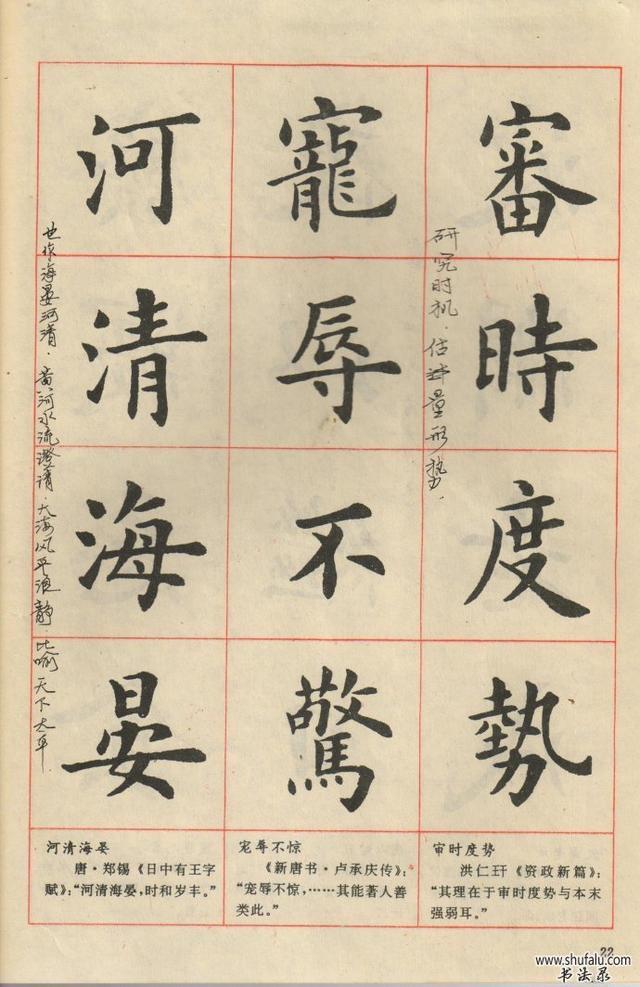 審時度勢
寵辱不驚
河清海晏
研究时机·估计量形势·
也作海晏河清·黄河水流澄清·大海风平浪静·比喻天下太平
审时度势
洪仁玕《资政新篇》：
“其理在于审时度势与本末
强弱耳。”
宠辱不惊
《新唐书·卢承庆传》：
“宠辱不惊，……其能著人善
类此。”
河清海晏
唐·郑锡《日中有王字
赋》：“河清海晏，时和岁丰。”
22
www.shufalu.com
书法录